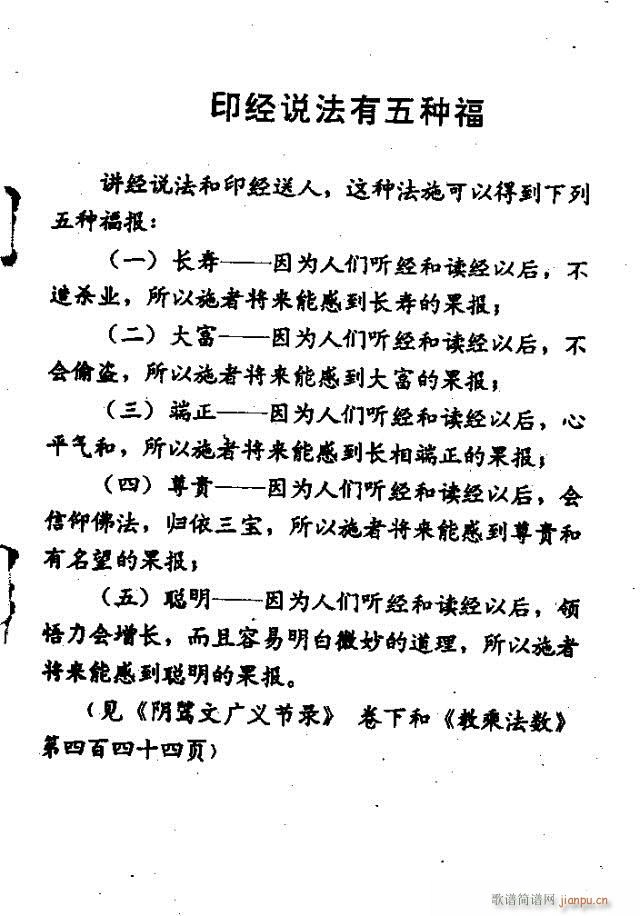 印经说法有五种福
讲经说法和印经送人，这种法施可以得到下列
五种福报：
（一）长寿——因为人们听经和读经以后，不
造杀业，所以施者将来能感到长寿的果报；
（二）大富——因为人们听经和读经以后，不
会偷盗，所以施者将来能感到大富的果报；
（三）端正——因为人们听经和读经以后，心
平气和，所以施者将来能感到长相端正的果报；
（四）尊贵——因为人们听经和读经以后，会
信仰佛法，归依三宝，所以施者将来能感到尊贵和
有名望的果报；
（五）聪明——因为人们听经和读经以后，领
悟力会增长，而且容易明白微妙的道理，所以施者
将来能感到聪明的果报。
（见《阴骘文广义节录》 卷下和《教乘法数》
第四百四十四页）
歌谱简谱网 jianpu.cn